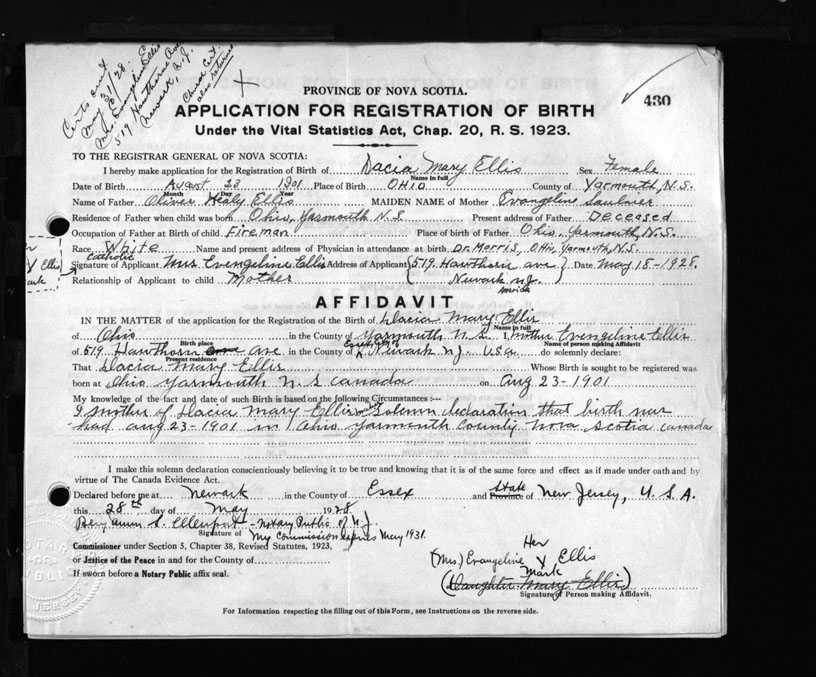 Certs out
May 31/28.
Mrs. Evangeline Ellis
519 Hawthorne Ave
Newark, N.J.
Church Cert.
also returned
X
430
PROVINCE OF NOVA SCOTIA.
APPLICATION FOR REGISTRATION OF BIRTH
Under the Vital Statistics Act, Chap. 20, R. S. 1923.
TO THE REGISTRAR GENERAL OF NOVA SCOTIA:
I hereby make application for the Registration of Birth of Dacia Mary Ellis Sex Female
Name in full
Date of Birth August 23 1901 Place of Birth OHIO County of Yarmouth, N.S.
Month Day Year
Name of Father Oliver Healy Ellis MAIDEN NAME of Mother Evangeline Saulnier
Residence of Father when child was born Ohio, Yarmouth N.S Present address of Father Deceased
Occupation of Father at Birth of child Fireman Place of birth of Father Ohio, Yarmouth, N.S.
Race White Name and present address of Physician in attendance at birth Dr. Morris, Ohio, Yarmouth, N.S.
Catholic
Signature of Applicant Mrs Evengeline Ellis Address of Applicant { 519 Hawthorn ave } Date May 18-1928.
Relationship of Applicant to child Mother { Newark NJ
America
Y Ellis
ark
AFFIDAVIT
IN THE MATTER of the application for the Registration of the Birth of Dacia Mary Ellis
Name in full
of Ohio in the County of Yarmouth N.S I, mother Evengeline Ellis
Birth place Name of person making Affidavit
of 519 Hawthorn ave in the County of Essex Newark NJ. USa do solemnly declare:
Present residence
That Dacia Mary Ellis Whose Birth is sought to be registered was
born at Ohio Yarmouth N S Canada on Aug 23-1901
My knowledge of the fact and date of such Birth is based on the following Circumstances :—
I mother of Dacia Mary Ellis Solemn declaration that birth was
had aug 23-1901 in Ohio Yarmouth County Nova Scotia Canada
I make this solemn declaration conscientiously believing it to be true and knowing that it is of the same force and effect as if made under oath and by
virtue of The Canada Evidence Act.
Declared before me at Newark in the County of Essex and Province State of New Jersey, U.S.A.
this 28th day of May 1928
Benjamin S. Ellenport - Notary Public of N.J.
Signature of My Commission expires May 1931.
Commissioner under Section 5, Chapter 38, Revised Statutes, 1923,
or Justice of the Peace in and for the County of
If sworn before a Notary Public affix seal.
Her
(Mrs.) Evangeline X Ellis
Mark
(Daughter Mary Ellis)
Signature of Person making Affidavit.
For Information respecting the filling out of this Form, see Instructions on the reverse side.